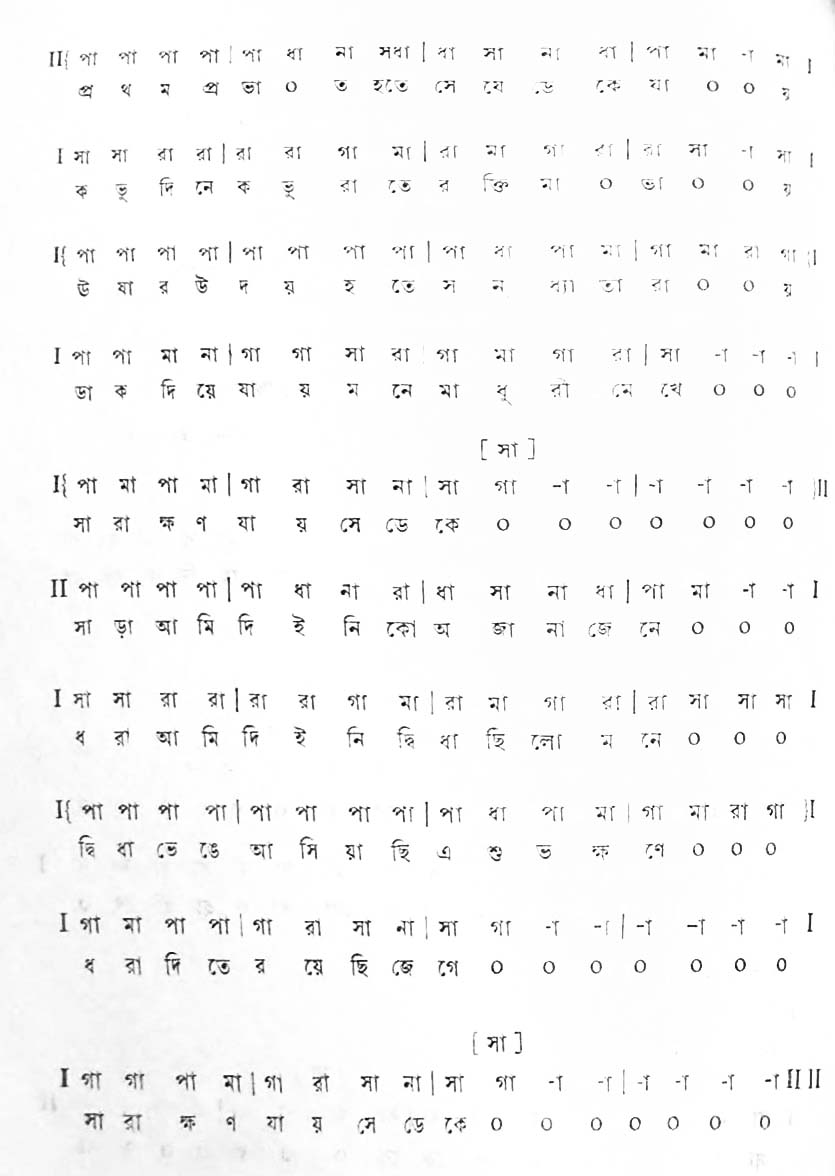 II{ পা পা পা পা | পা ধা না সধা | ধা সা না ধা | পা মা -া মা I
প্র থ ম প্র ভা ০ ত হতে সে যে ডে কে যা ০ ০ য়
I সা সা রা রা | রা রা গা মা | রা মা গা রা | রা সা -া সা I
ক ভু দি নে ক ভু রা তে র ক্তি মা ০ ভা ০ ০ য়
I{ পা পা পা পা | পা পা পা পা | পা ধা পা মা | গা মা রা গা }I
উ ষা র উ দ য় হ তে স ন ধ্যা তা রা ০ ০ য়
I পা পা মা না | গা গা সা রা | গা মা গা রা | সা -া -া -া I
ডা ক দি য়ে যা য় ম নে মা ধু রী মে খে ০ ০ ০
[ সা ]
I{ পা মা পা মা | গা রা সা না | সা গা -া -া | -া -া -া -া }II
সা রা ক্ষ ণ যা য় সে ডে কে ০ ০ ০ ০ ০ ০ ০
II পা পা পা পা | পা ধা না রা | ধা সা না ধা | পা মা -া -া I
সা ড়া আ মি দি ই নি কো অ জা না জে নে ০ ০ ০
I সা সা রা রা | রা রা গা মা | রা মা গা রা | রা সা সা সা I
ধ রা আ মি দি ই নি দ্বি ধা ছি লো ম নে ০ ০ ০
I{ পা পা পা পা | পা পা পা পা | পা ধা পা মা | গা মা রা গা }I
দ্বি ধা ভে ঙে আ সি য়া ছি এ শু ভ ক্ষ ণে ০ ০ ০
I গা মা পা পা | গা রা সা না | সা গা -া -া | -া -া -া -া I
ধ রা দি তে র য়ে ছি জে গে ০ ০ ০ ০ ০ ০ ০
[ সা ]
I গা গা পা মা | গা রা সা না | সা গা -া -া | -া -া -া -া II II
সা রা ক্ষ ণ যা য় সে ডে কে ০ ০ ০ ০ ০ ০ ০